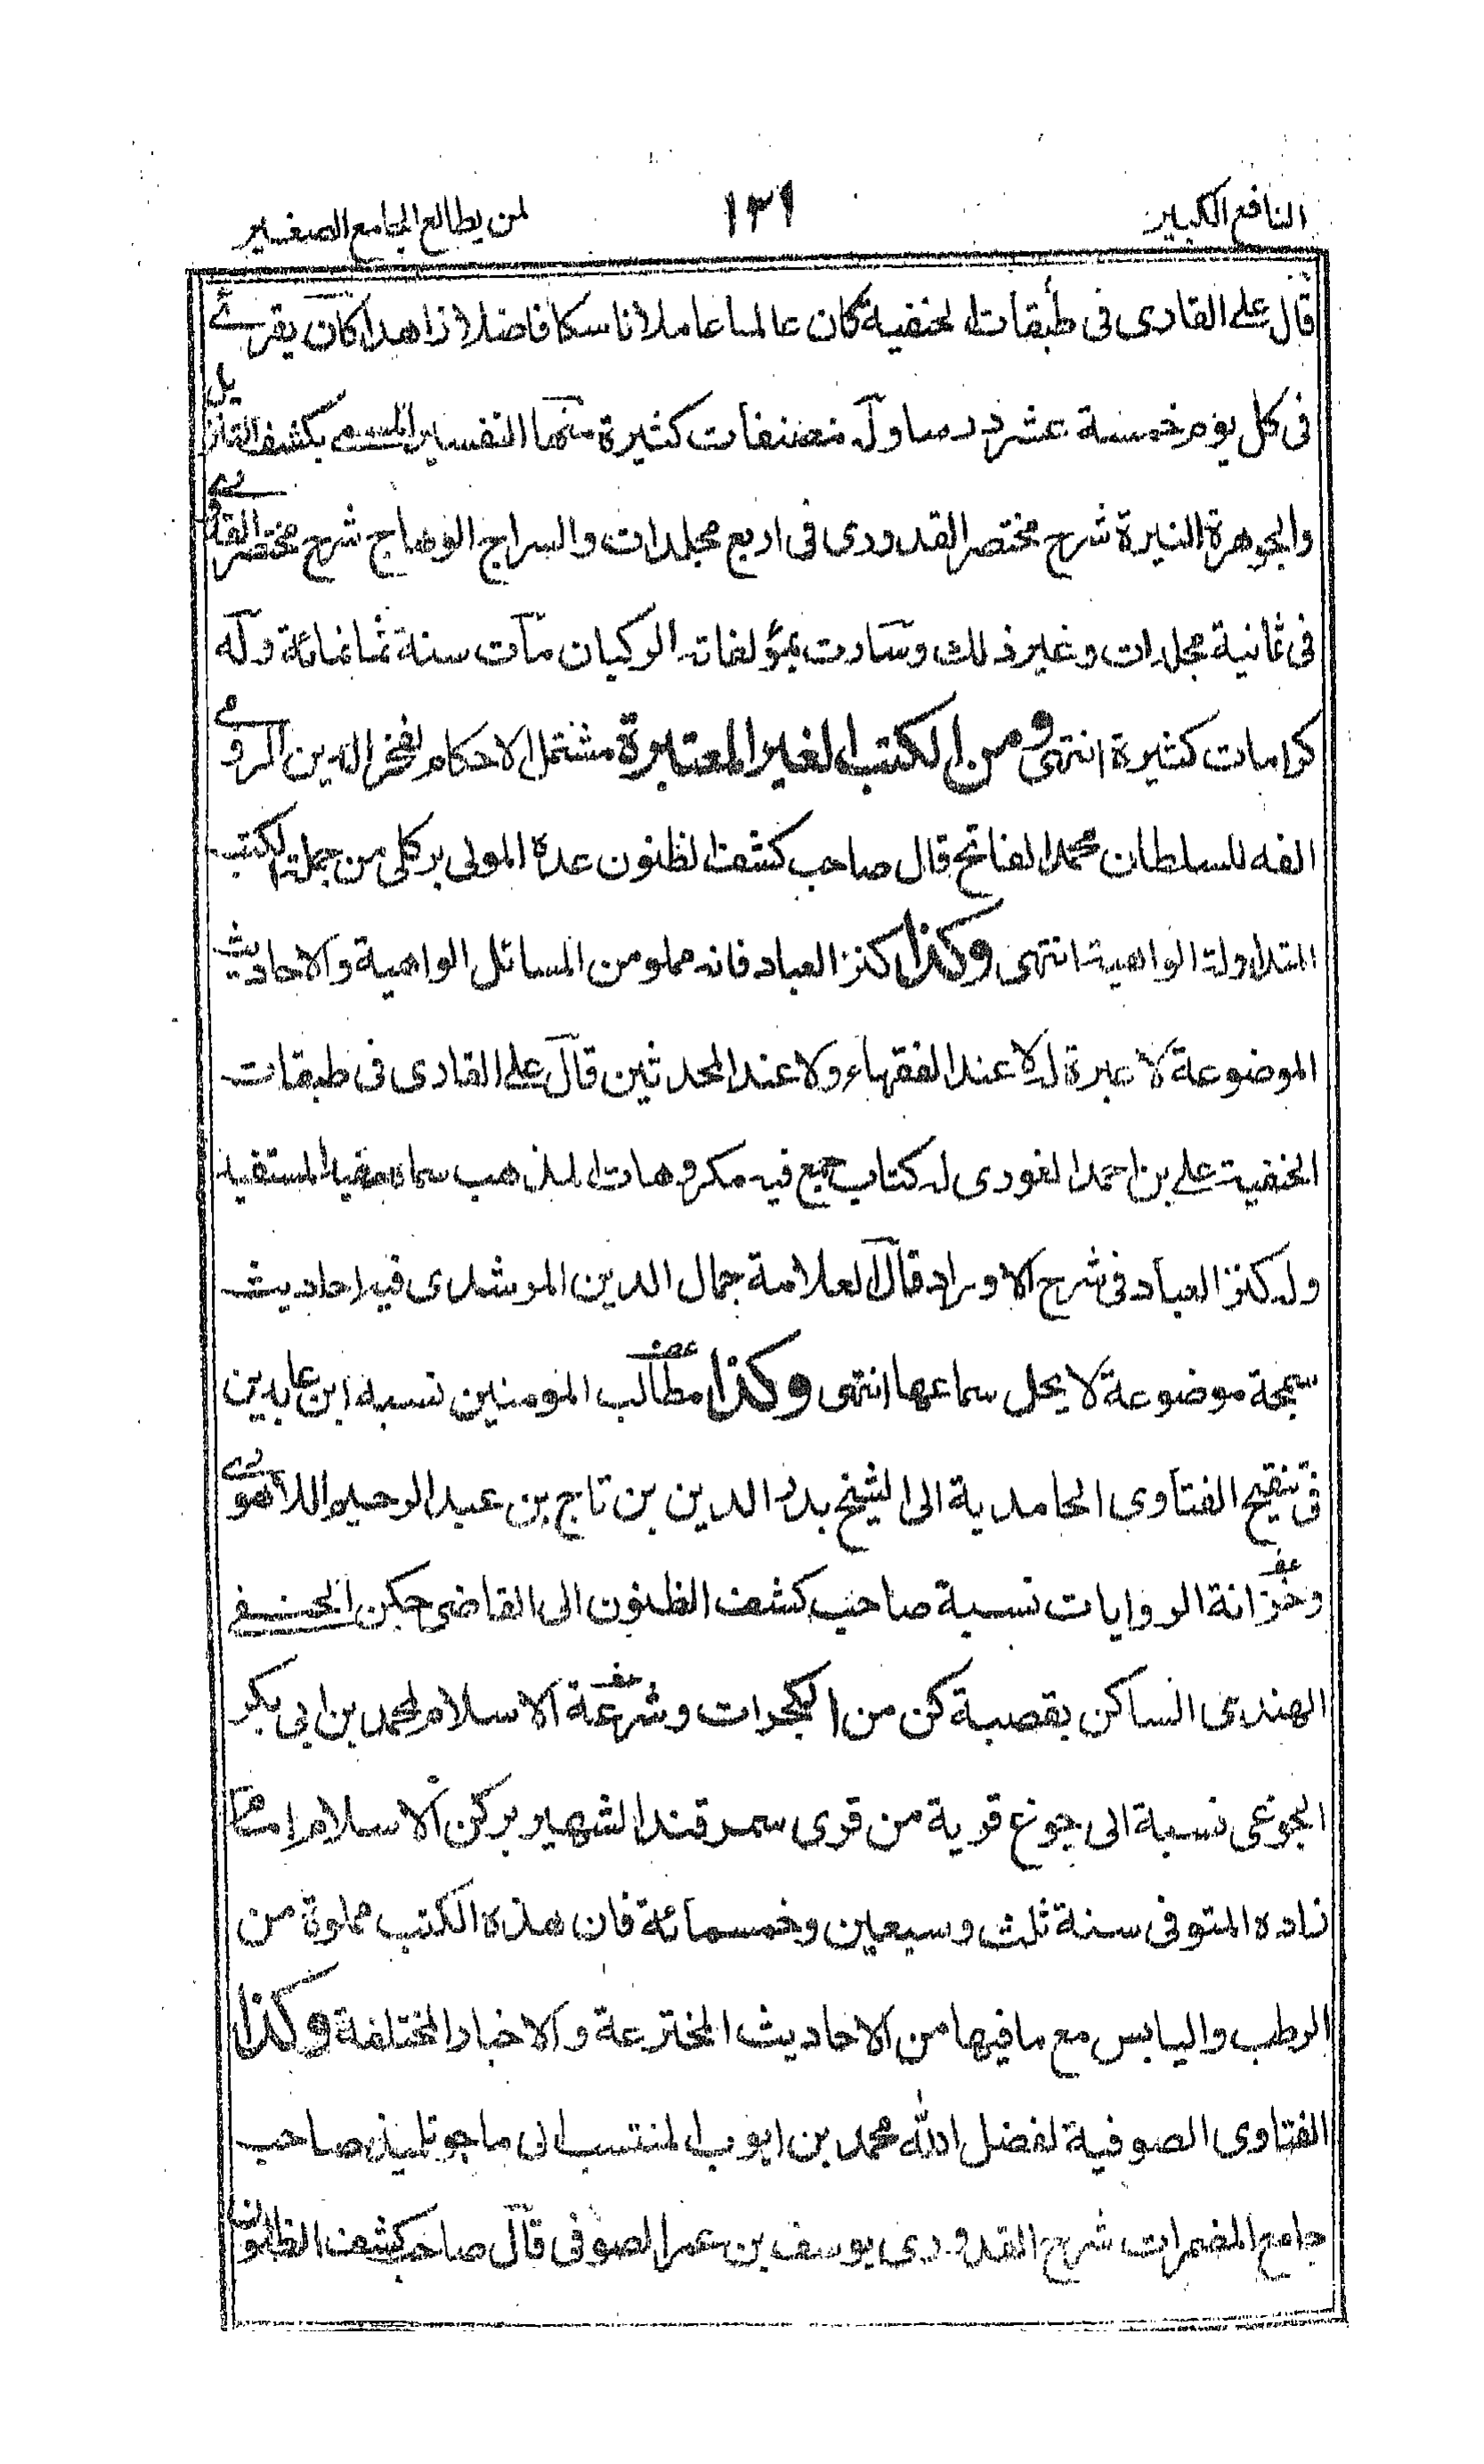 النافع الكبير ١٣١ لمن يطالع الجامع الصغير
قال علي القاري في طبقات الحنفية كان عالما عاملا ناسكا فاضلا زاهدا كان يقرئ
في كل يوم خمسة عشر درسا وله مصنفات كثيرة منها التفسير المسمى بكشف التنزيل
والجوهرة النيرة شرح مختصر القدوري في اربع مجلدات والسراج الوهاج شرح مختصر القدوري
في ثمانية مجلدات وغير ذلك وسارت بمؤلفاته الركبان مات سنة ثمانمائة وله
كرامات كثيرة انتهى ومن الكتب الغير المعتبرة مشتمل الاحكام لفخر الدين الرومي
الفه للسلطان محمد الفاتح قال صاحب كشف الظنون عده المولى بركلي من جملة الكتب
المتداولة الواهية انتهى وكذا كنز العباد فانه مملو من المسائل الواهية والاحاديث
الموضوعة لا عبرة له لا عند الفقهاء ولا عند المحدثين قال علي القاري في طبقات
الحنفية علي بن احمد الغوري له كتاب جمع فيه مكروهات المذهب سماه مفيد المستفيد
وله كنز العباد في شرح الاوراد قال العلامة جمال الدين المرشدي فيه احاديث
سمجة موضوعة لا يحل سماعها انتهى وكذا مطالب المومنين نسبه ابن عابدين
في تنقيح الفتاوى الحامدية الى الشيخ بدر الدين بن تاج بن عبد الرحيم اللاهوري
وخزانة الروايات نسبة صاحب كشف الظنون الى القاضي جكن الحنفي
الهندي الساكن بقصبة كن من الكجرات وشرعة الاسلام لمحمد بن ابي بكر
الجوغي نسبة الى جوغ قرية من قرى سمرقند الشهير بركن الاسلام امام
زاده المتوفى سنة ثلث وسبعين وخمسمائة فان هذه الكتب مملوة من
الرطب واليابس مع ما فيها من الاحاديث المخترعة والاخبار المختلفة وكذا
الفتاوى الصوفية لفضل الله محمد بن ايوب المنتسب الى ماجو تلميذ صاحب
جامع المضمرات شرح القدوري يوسف بن عمر الصوفي قال صاحب كشف الظنون